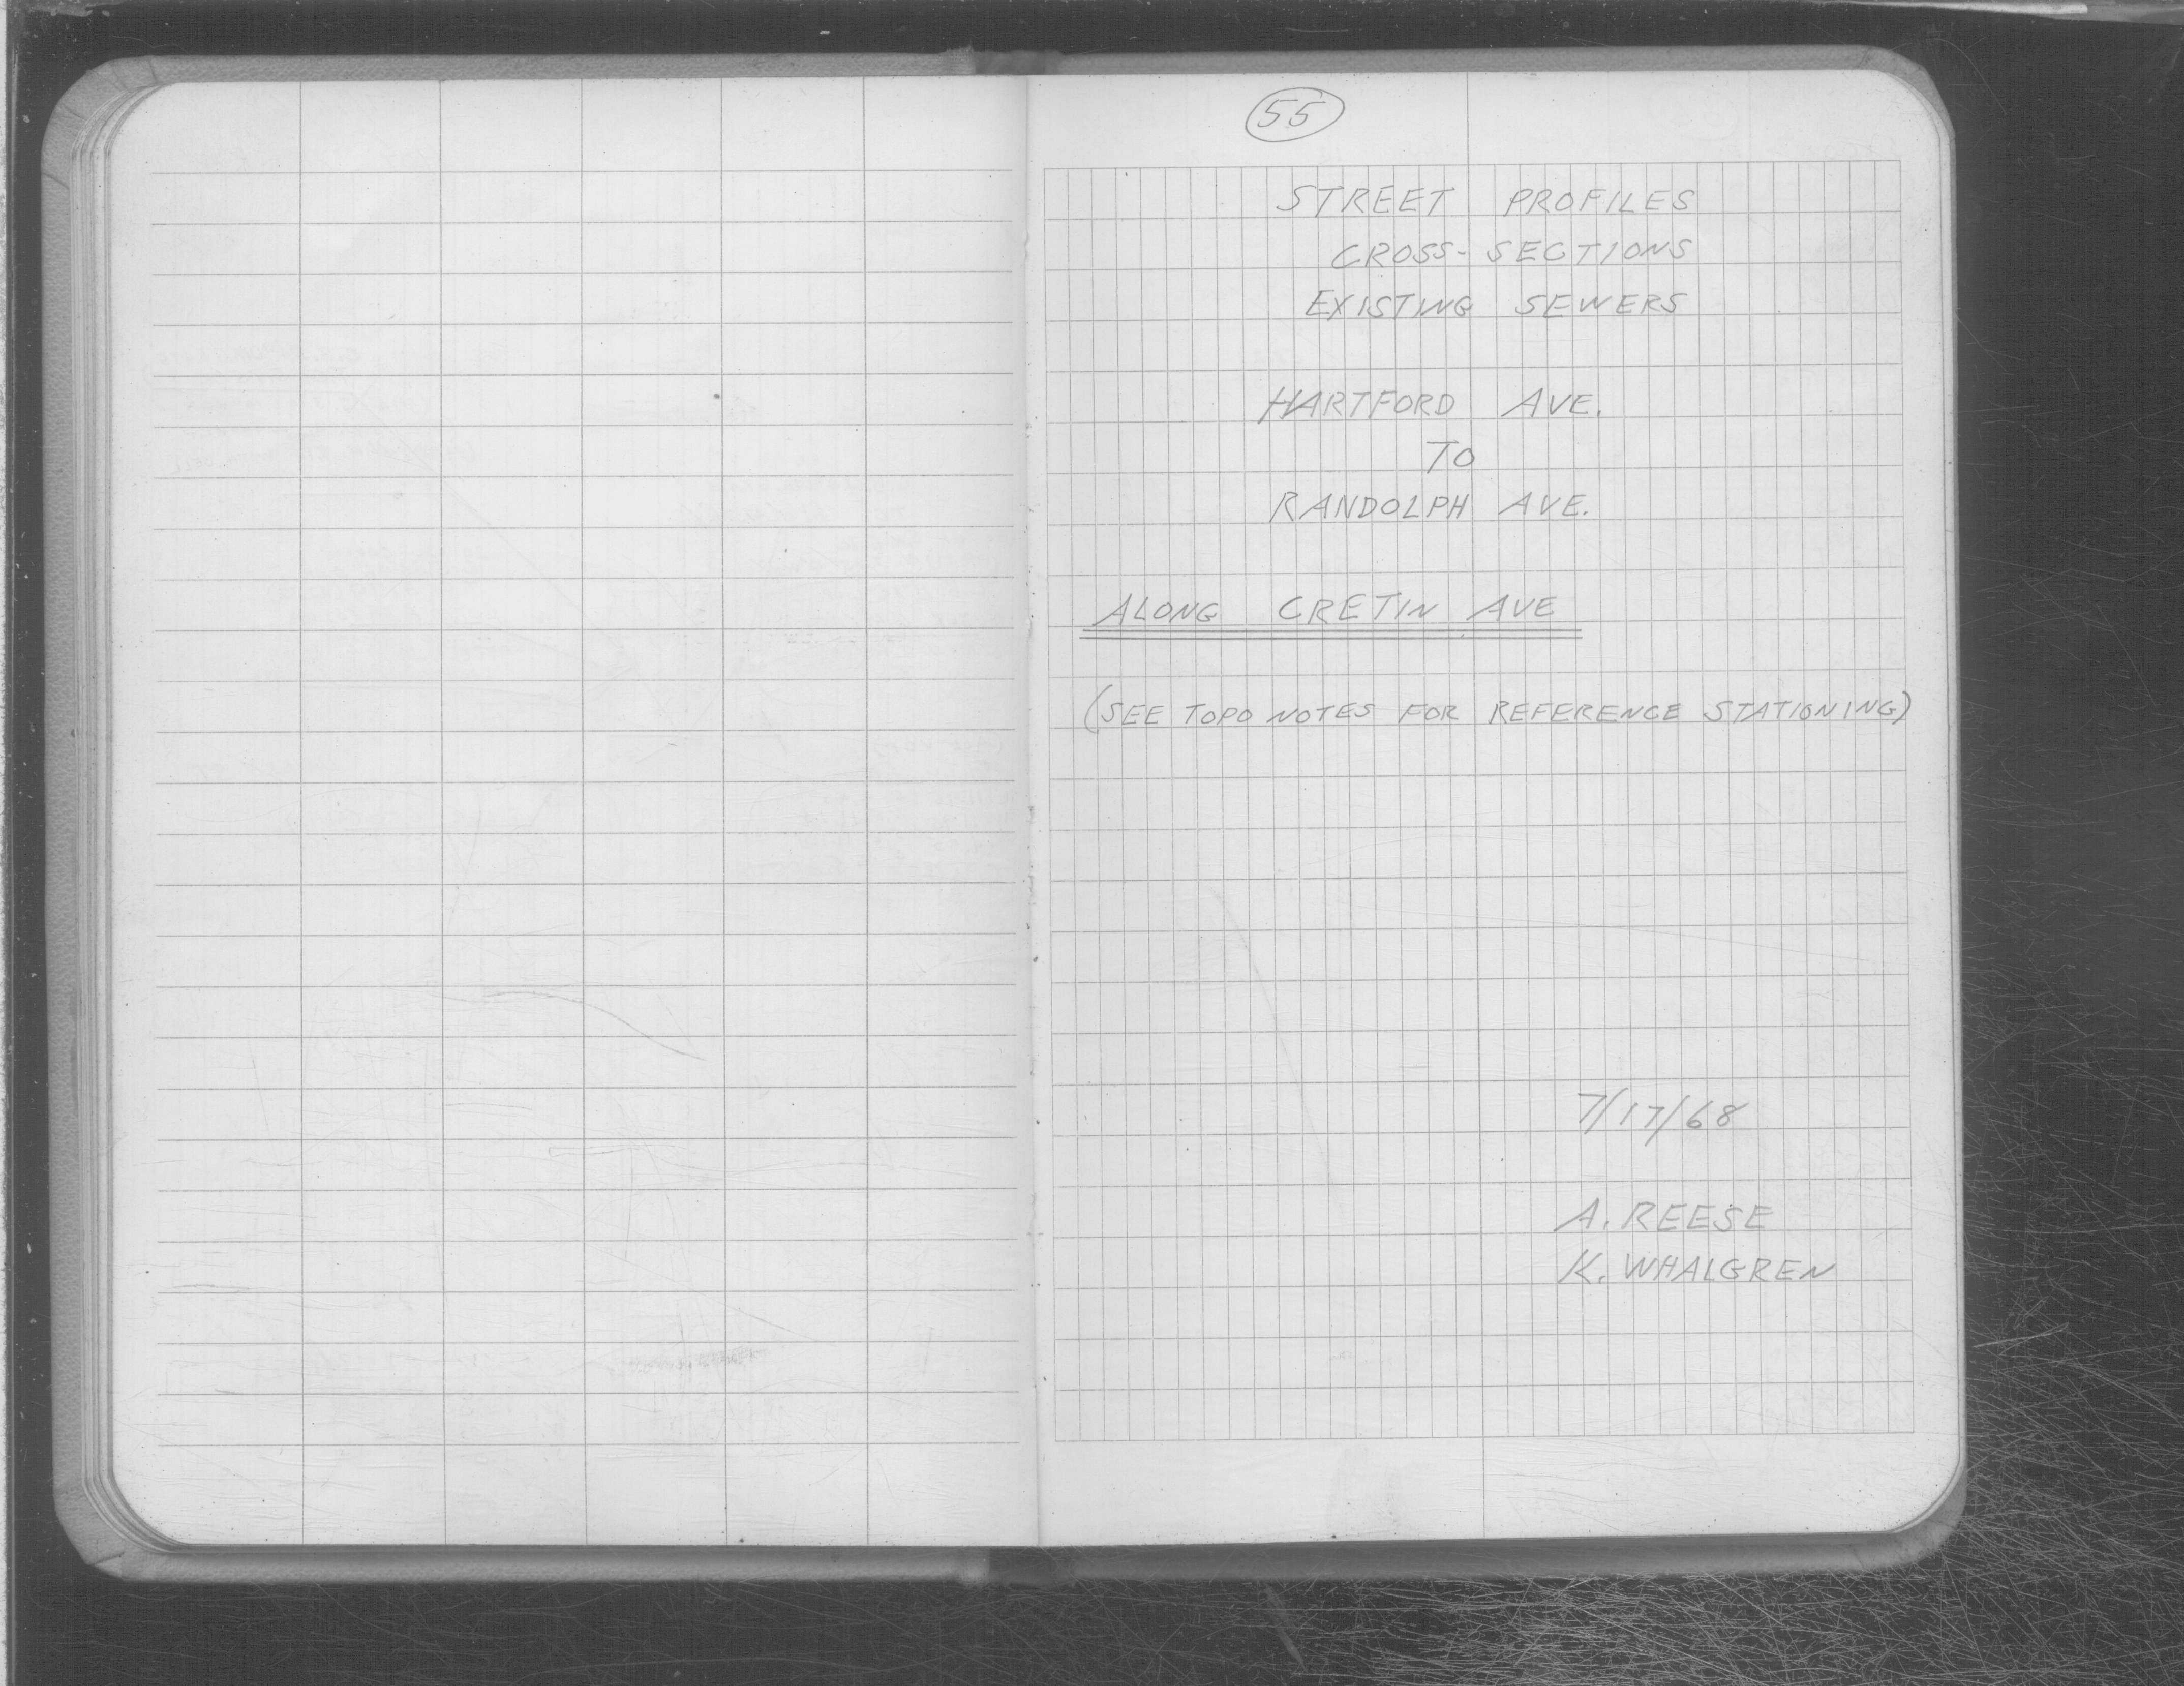 55
STREET PROFILES
CROSS-SECTIONS
EXISTING SEWERS
HARTFORD AVE.
TO
RANDOLPH AVE.
ALONG CRETIN AVE
(SEE TOPO NOTES FOR REFERENCE STATIONING)
7/17/68
A. REESE
K. WHALGREN